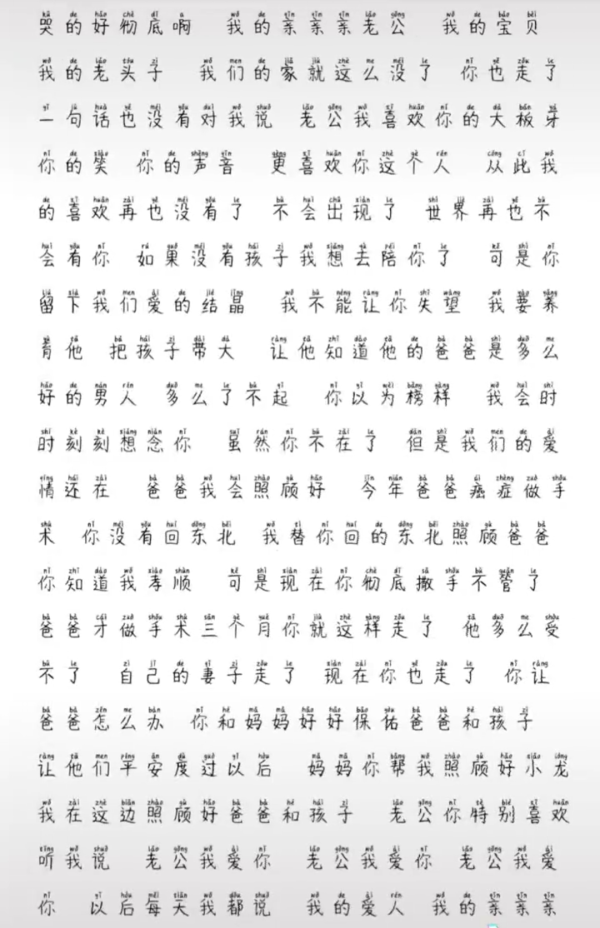 哭的好彻底啊 我的亲亲亲老公 我的宝贝
我的老头子 我们的家就这么没了 你也走了
一句话也没有对我说 老公我喜欢你的大板牙
你的笑 你的声音 更喜欢你这个人 从此我
的喜欢再也没有了 不会出现了 世界再也不
会有你 如果没有孩子我想去陪你了 可是你
留下我们爱的结晶 我不能让你失望 我要养
育他 把孩子带大 让他知道他的爸爸是多么
好的男人 多么了不起 你以为榜样 我会时
时刻刻想念你 虽然你不在了 但是我们的爱
情还在 爸爸我会照顾好 今年爸爸癌症做手
术 你没有回东北 我替你回的东北照顾爸爸
你知道我孝顺 可是现在你彻底撒手不管了
爸爸才做手术三个月你就这样走了 他多么受
不了 自己的妻子走了 现在你也走了 你让
爸爸怎么办 你和妈妈好好保佑爸爸和孩子
让他们平安度过以后 妈妈你帮我照顾好小龙
我在这边照顾好爸爸和孩子 老公你特别喜欢
听我说 老公我爱你 老公我爱你 老公我爱
你 以后每天我都说 我的爱人 我的亲亲亲